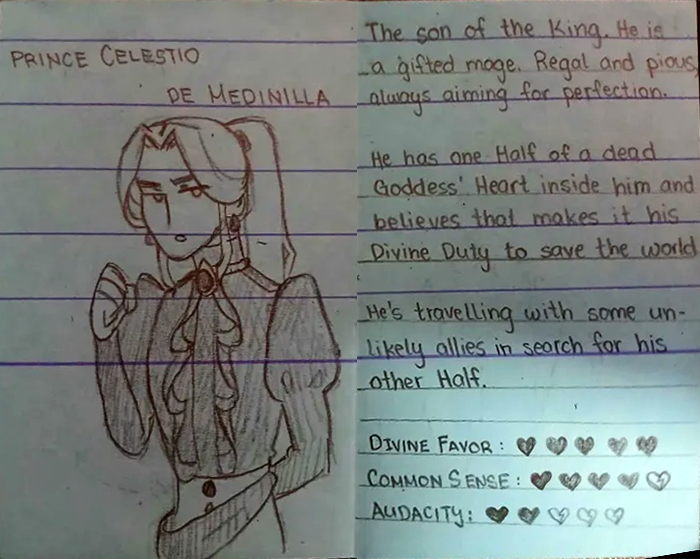 PRINCE CELESTIO
DE MEDINILLA
The son of the King. He is
a gifted mage. Regal and pious,
always aiming for perfection.
He has one Half of a dead
Goddess' Heart inside him and
believes that makes it his
Divine Duty to save the world
He's travelling with some un-
likely allies in search for his
other Half.
DIVINE FAVOR:
COMMON SENSE:
AUDACITY: